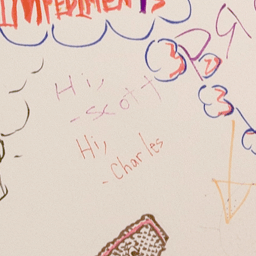 IMPEDIMENTS
Hi,
-Scott
Hi,
-Charles